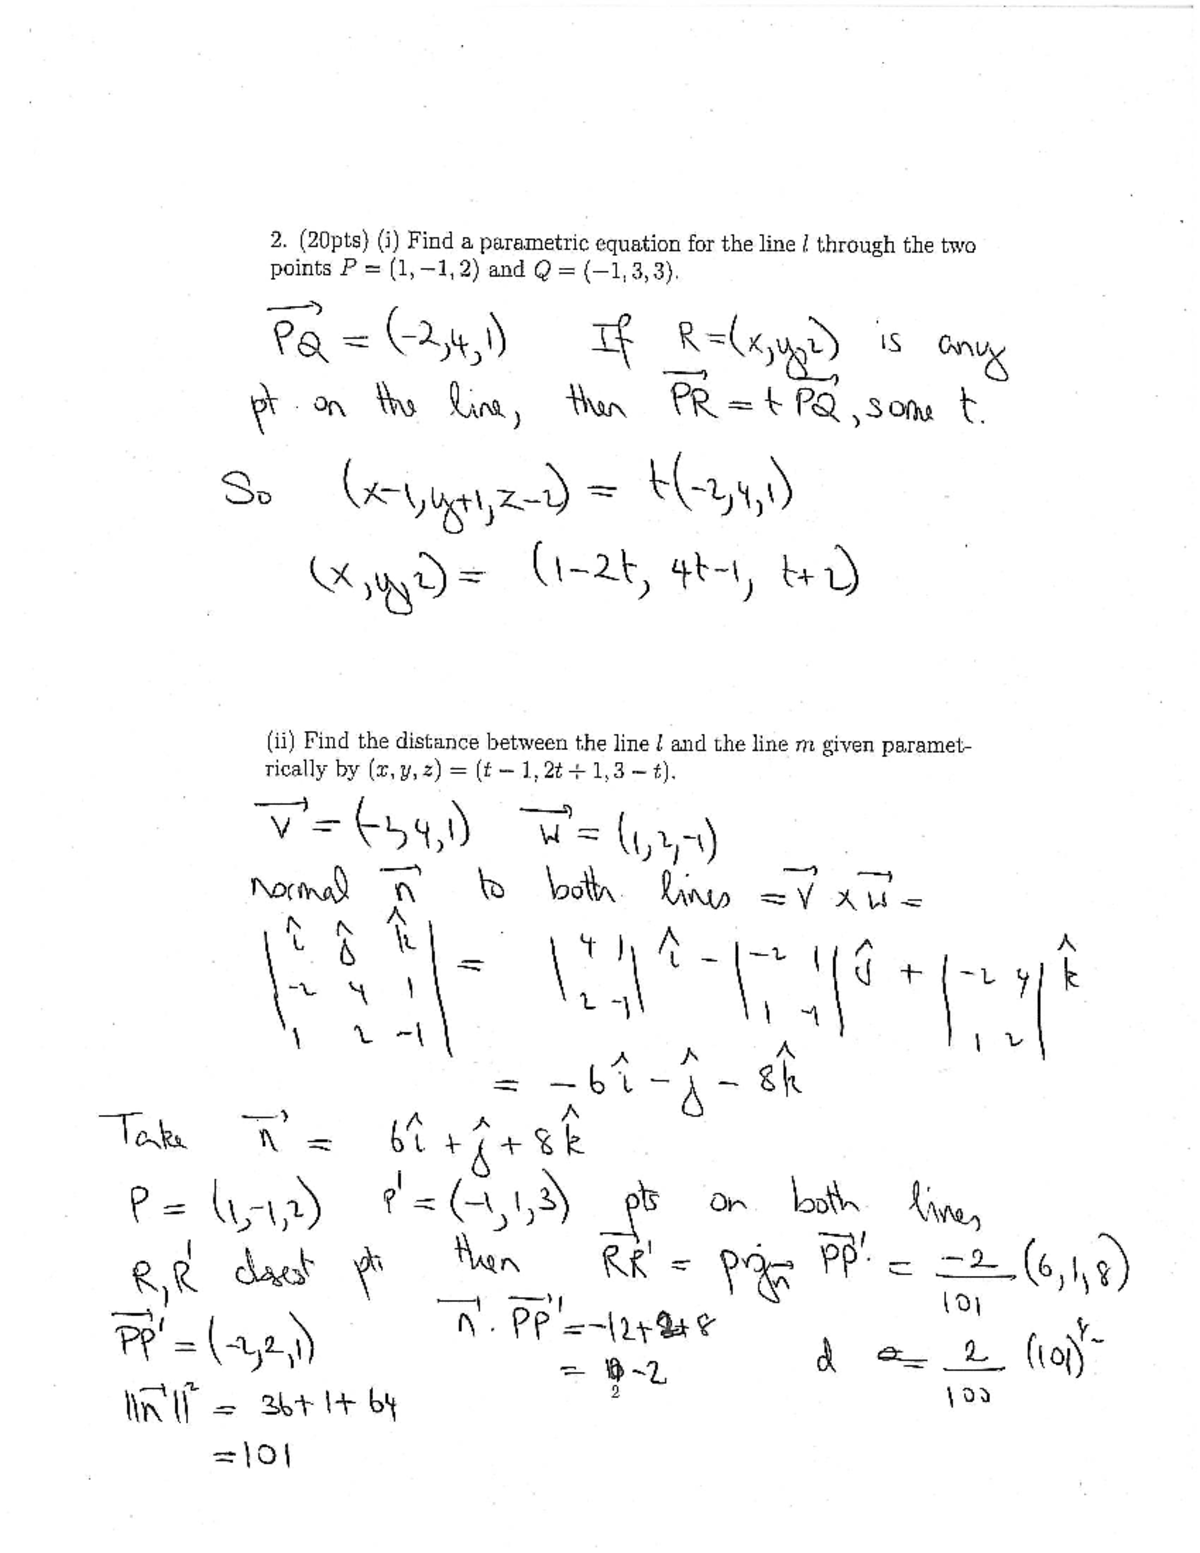 2. (20pts) (i) Find a parametric equation for the line l through the two
points P = (1, −1, 2) and Q = (−1, 3, 3).
PQ⃗ = (-2,4,1) If R=(x,y,z) is any
pt. on the line, then PR⃗ = t PQ⃗, some t.
So (x-1,y+1,z-2) = t(-2,4,1)
(x,y,z) = (1-2t, 4t-1, t+2)
(ii) Find the distance between the line l and the line m given paramet-
rically by (x, y, z) = (t − 1, 2t + 1, 3 − t).
v⃗ = (-2,4,1) w⃗ = (1,2,-1)
normal n⃗ to both lines = v⃗ × w⃗ =
| î ĵ k̂ | = | 4 1 | î - | -2 1 | ĵ + | -2 4 | k̂
| -2 4 1 | | 2 -1 | | 1 -1 | | 1 2 |
| 1 2 -1 |
= -6î - ĵ - 8k̂
Take n⃗ = 6î + ĵ + 8k̂
P = (1,-1,2) P' = (-1,1,3) pts on both lines
R,R' closest pts then RR'⃗ = proj n⃗ PP'⃗ = -2/101 (6,1,8)
PP'⃗ = (-2,2,1) n⃗ . PP'⃗ = -12+2+8
= -2
d = 2/100 (101)
||n⃗||² = 36+1+64
=101
2